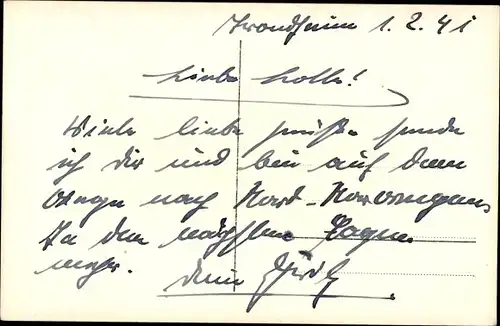 Trondheim 1.2.41
Liebe Lotte!
Viele liebe Grüße sende
ich Dir und bin auf dem
Wege nach Nord-Norwegen.
In den nächsten Tagen
mehr. Dein